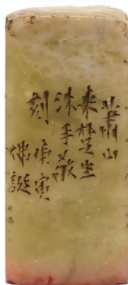 蕭山
朱芝生
沐手敬
刻 庚寅
佛誕